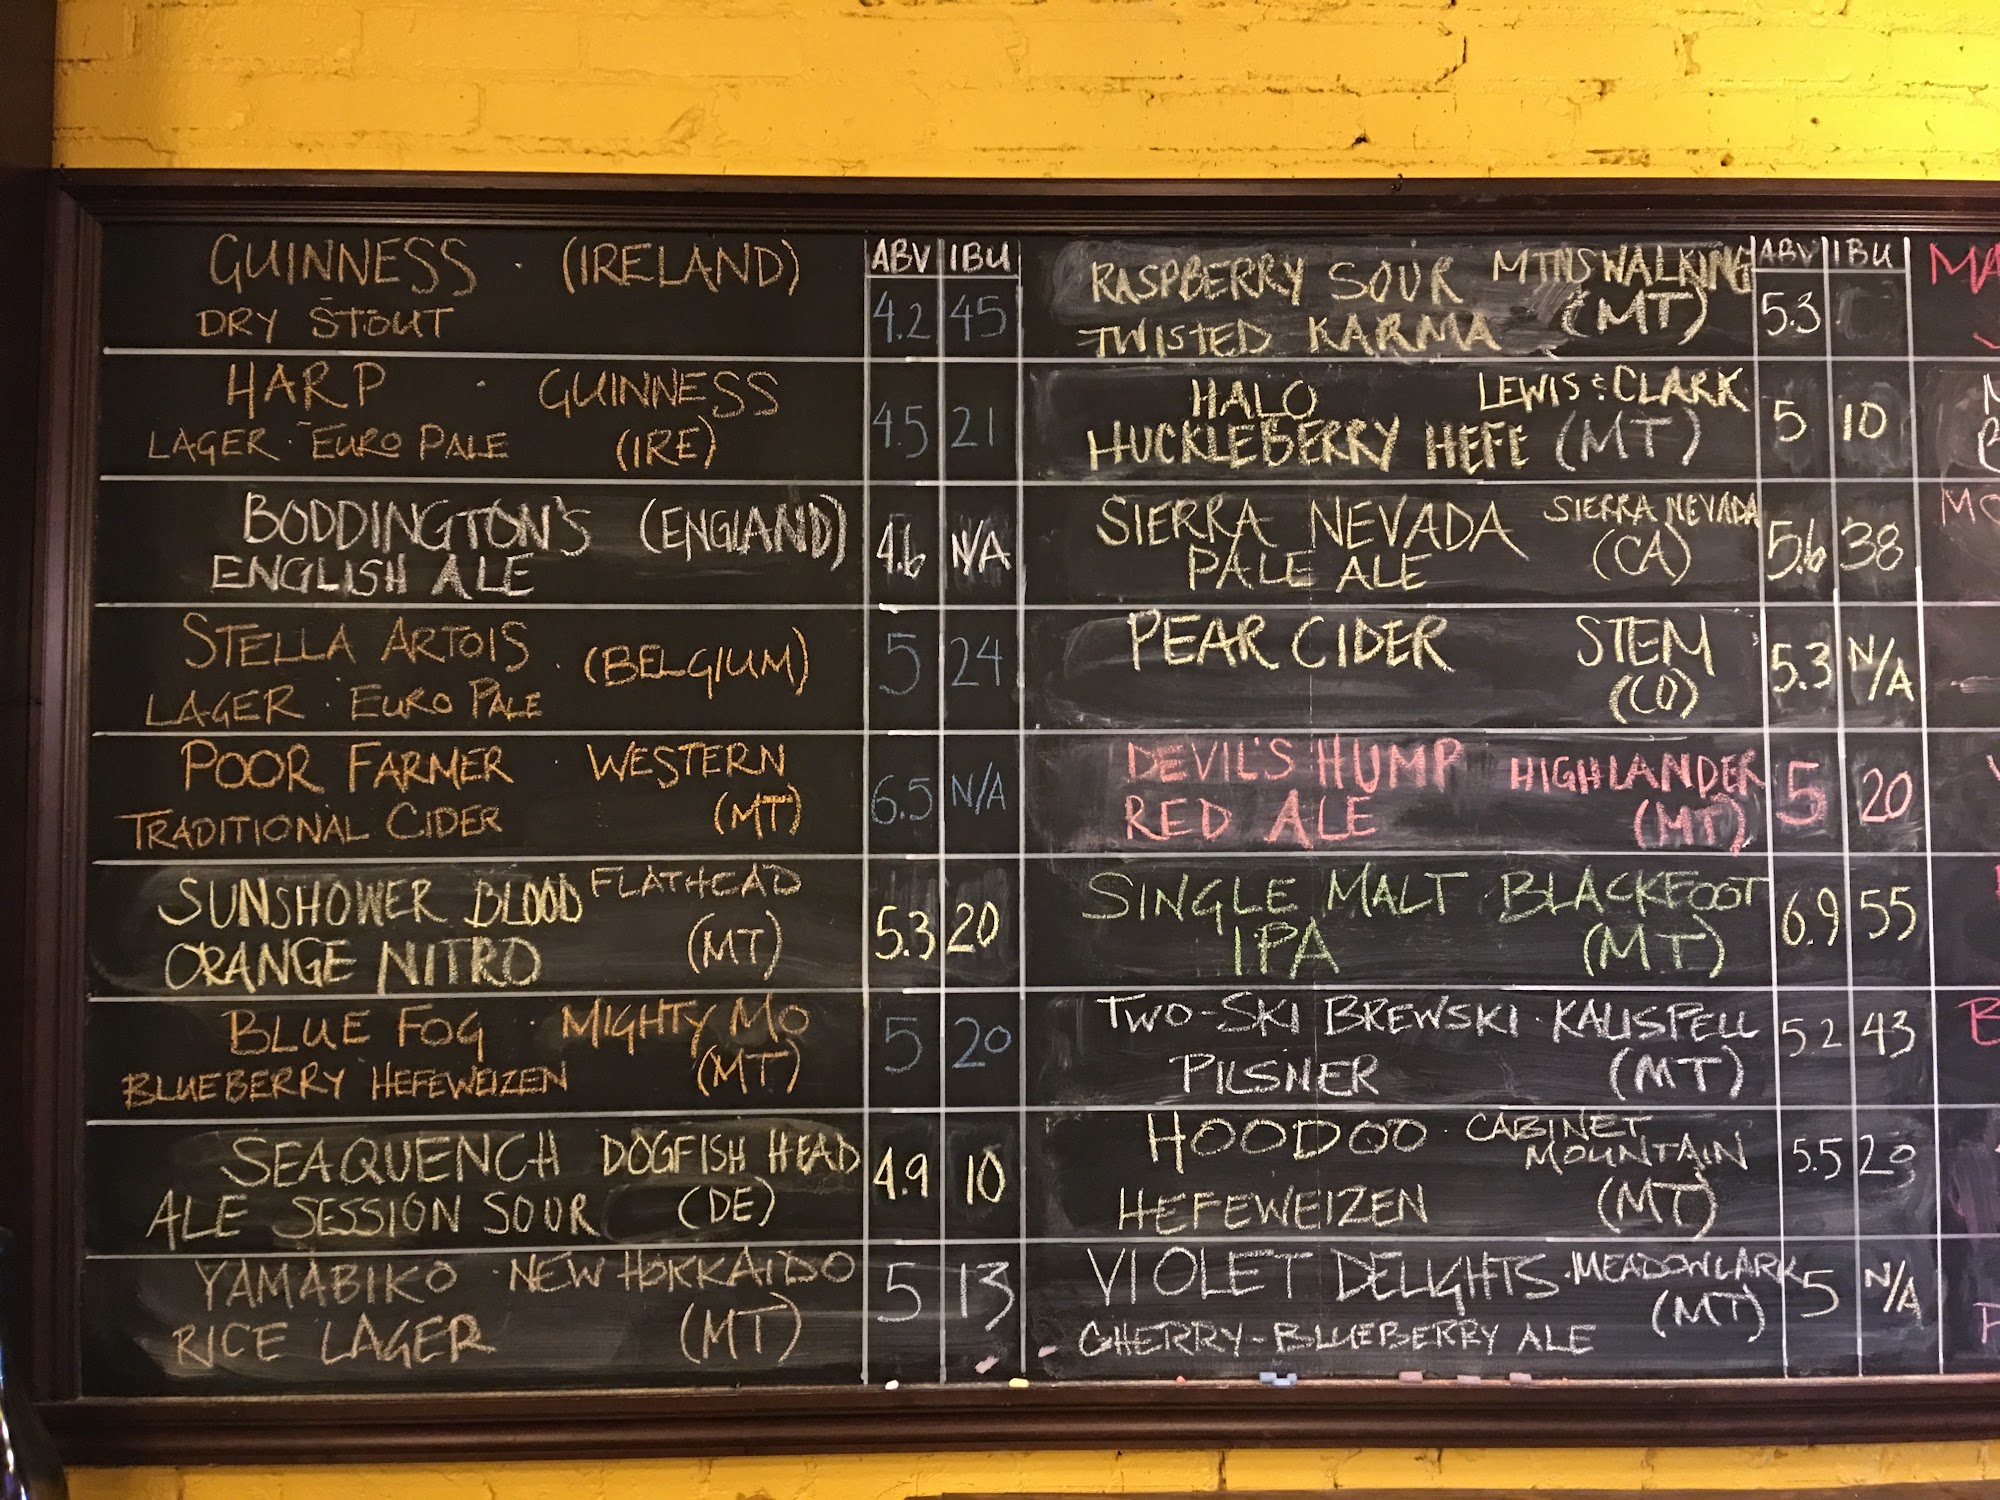 GUINNESS · (IRELAND) ABV IBU
DRY STOUT 4.2 45
HARP · GUINNESS
LAGER · EURO PALE (IRE) 4.5 21
BODDINGTON'S (ENGLAND)
ENGLISH ALE 4.6 N/A
STELLA ARTOIS · (BELGIUM)
LAGER · EURO PALE 5 24
POOR FARMER · WESTERN
TRADITIONAL CIDER (MT) 6.5 N/A
SUNSHOWER BLOOD FLATHEAD
ORANGE NITRO (MT) 5.3 20
BLUE FOG · MIGHTY MO
BLUEBERRY HEFEWEIZEN (MT) 5 20
SEAQUENCH DOGFISH HEAD
ALE SESSION SOUR (DE) 4.9 10
YAMABIKO · NEW HOKKAIDO
RICE LAGER (MT) 5 13
RASPBERRY SOUR MTNS WALKING ABV IBU
TWISTED KARMA (MT) 5.3
HALO LEWIS & CLARK
HUCKLEBERRY HEFE (MT) 5 10
SIERRA NEVADA SIERRA NEVADA
PALE ALE (CA) 5.6 38
PEAR CIDER STEM
(CO) 5.3 N/A
DEVIL'S HUMP HIGHLANDER
RED ALE (MT) 5 20
SINGLE MALT · BLACKFOOT
IPA (MT) 6.9 55
TWO-SKI BREWSKI · KALISPELL
PILSNER (MT) 5.2 43
HOODOO · CABINET
MOUNTAIN
HEFEWEIZEN (MT) 5.5 20
VIOLET DELIGHTS · MEADOWLARK
CHERRY-BLUEBERRY ALE (MT) 5 N/A
MA
MO